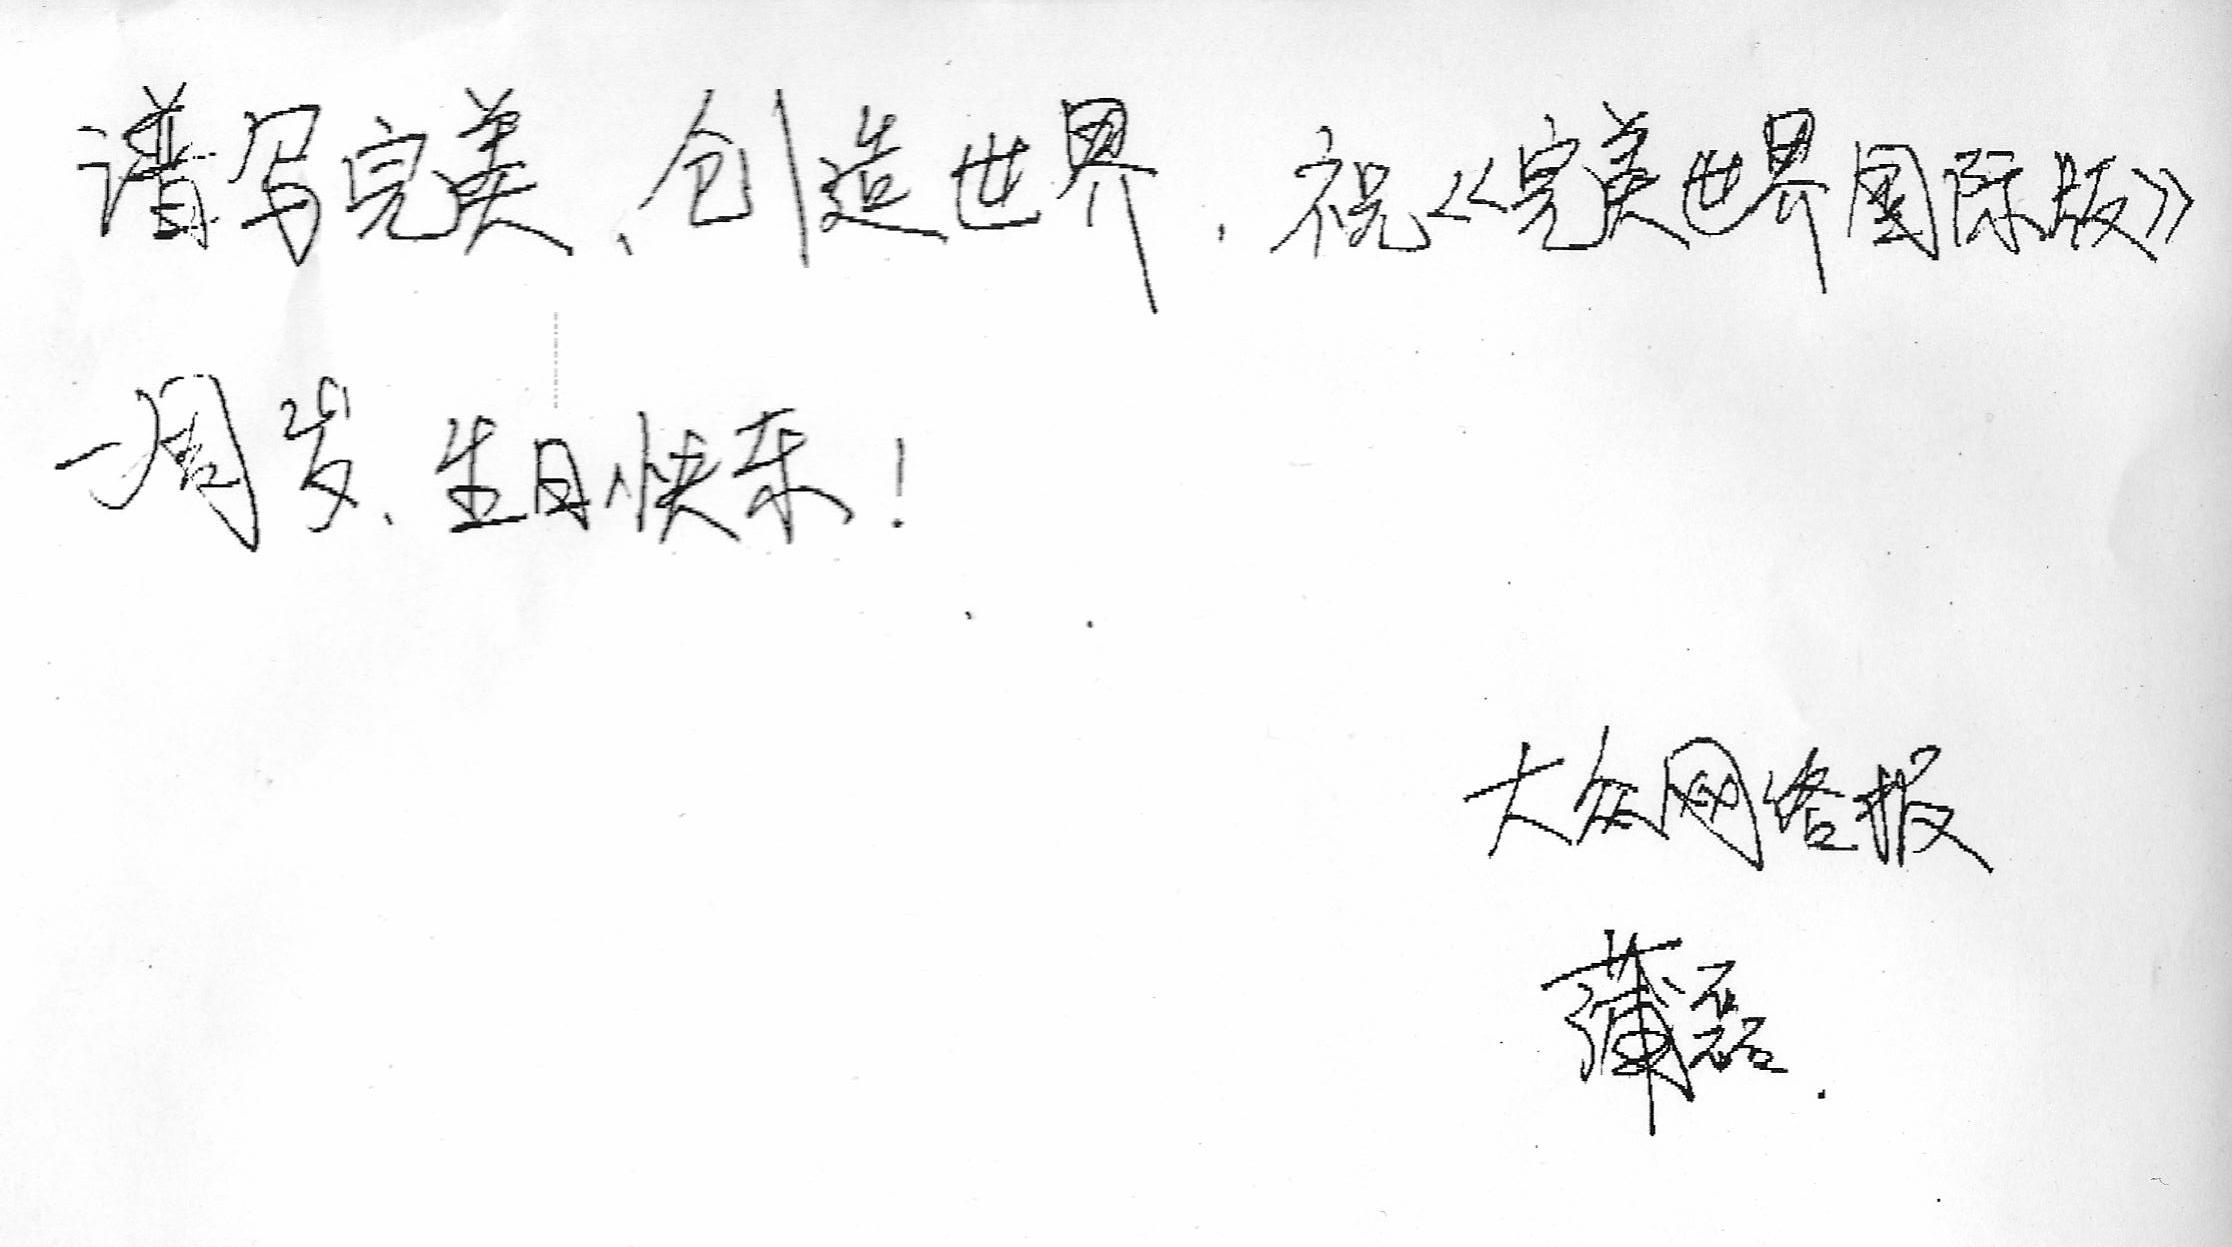 谱写完美、创造世界，祝《完美世界国际版》
一周岁、生日快乐！
大众网络报
蒲磊